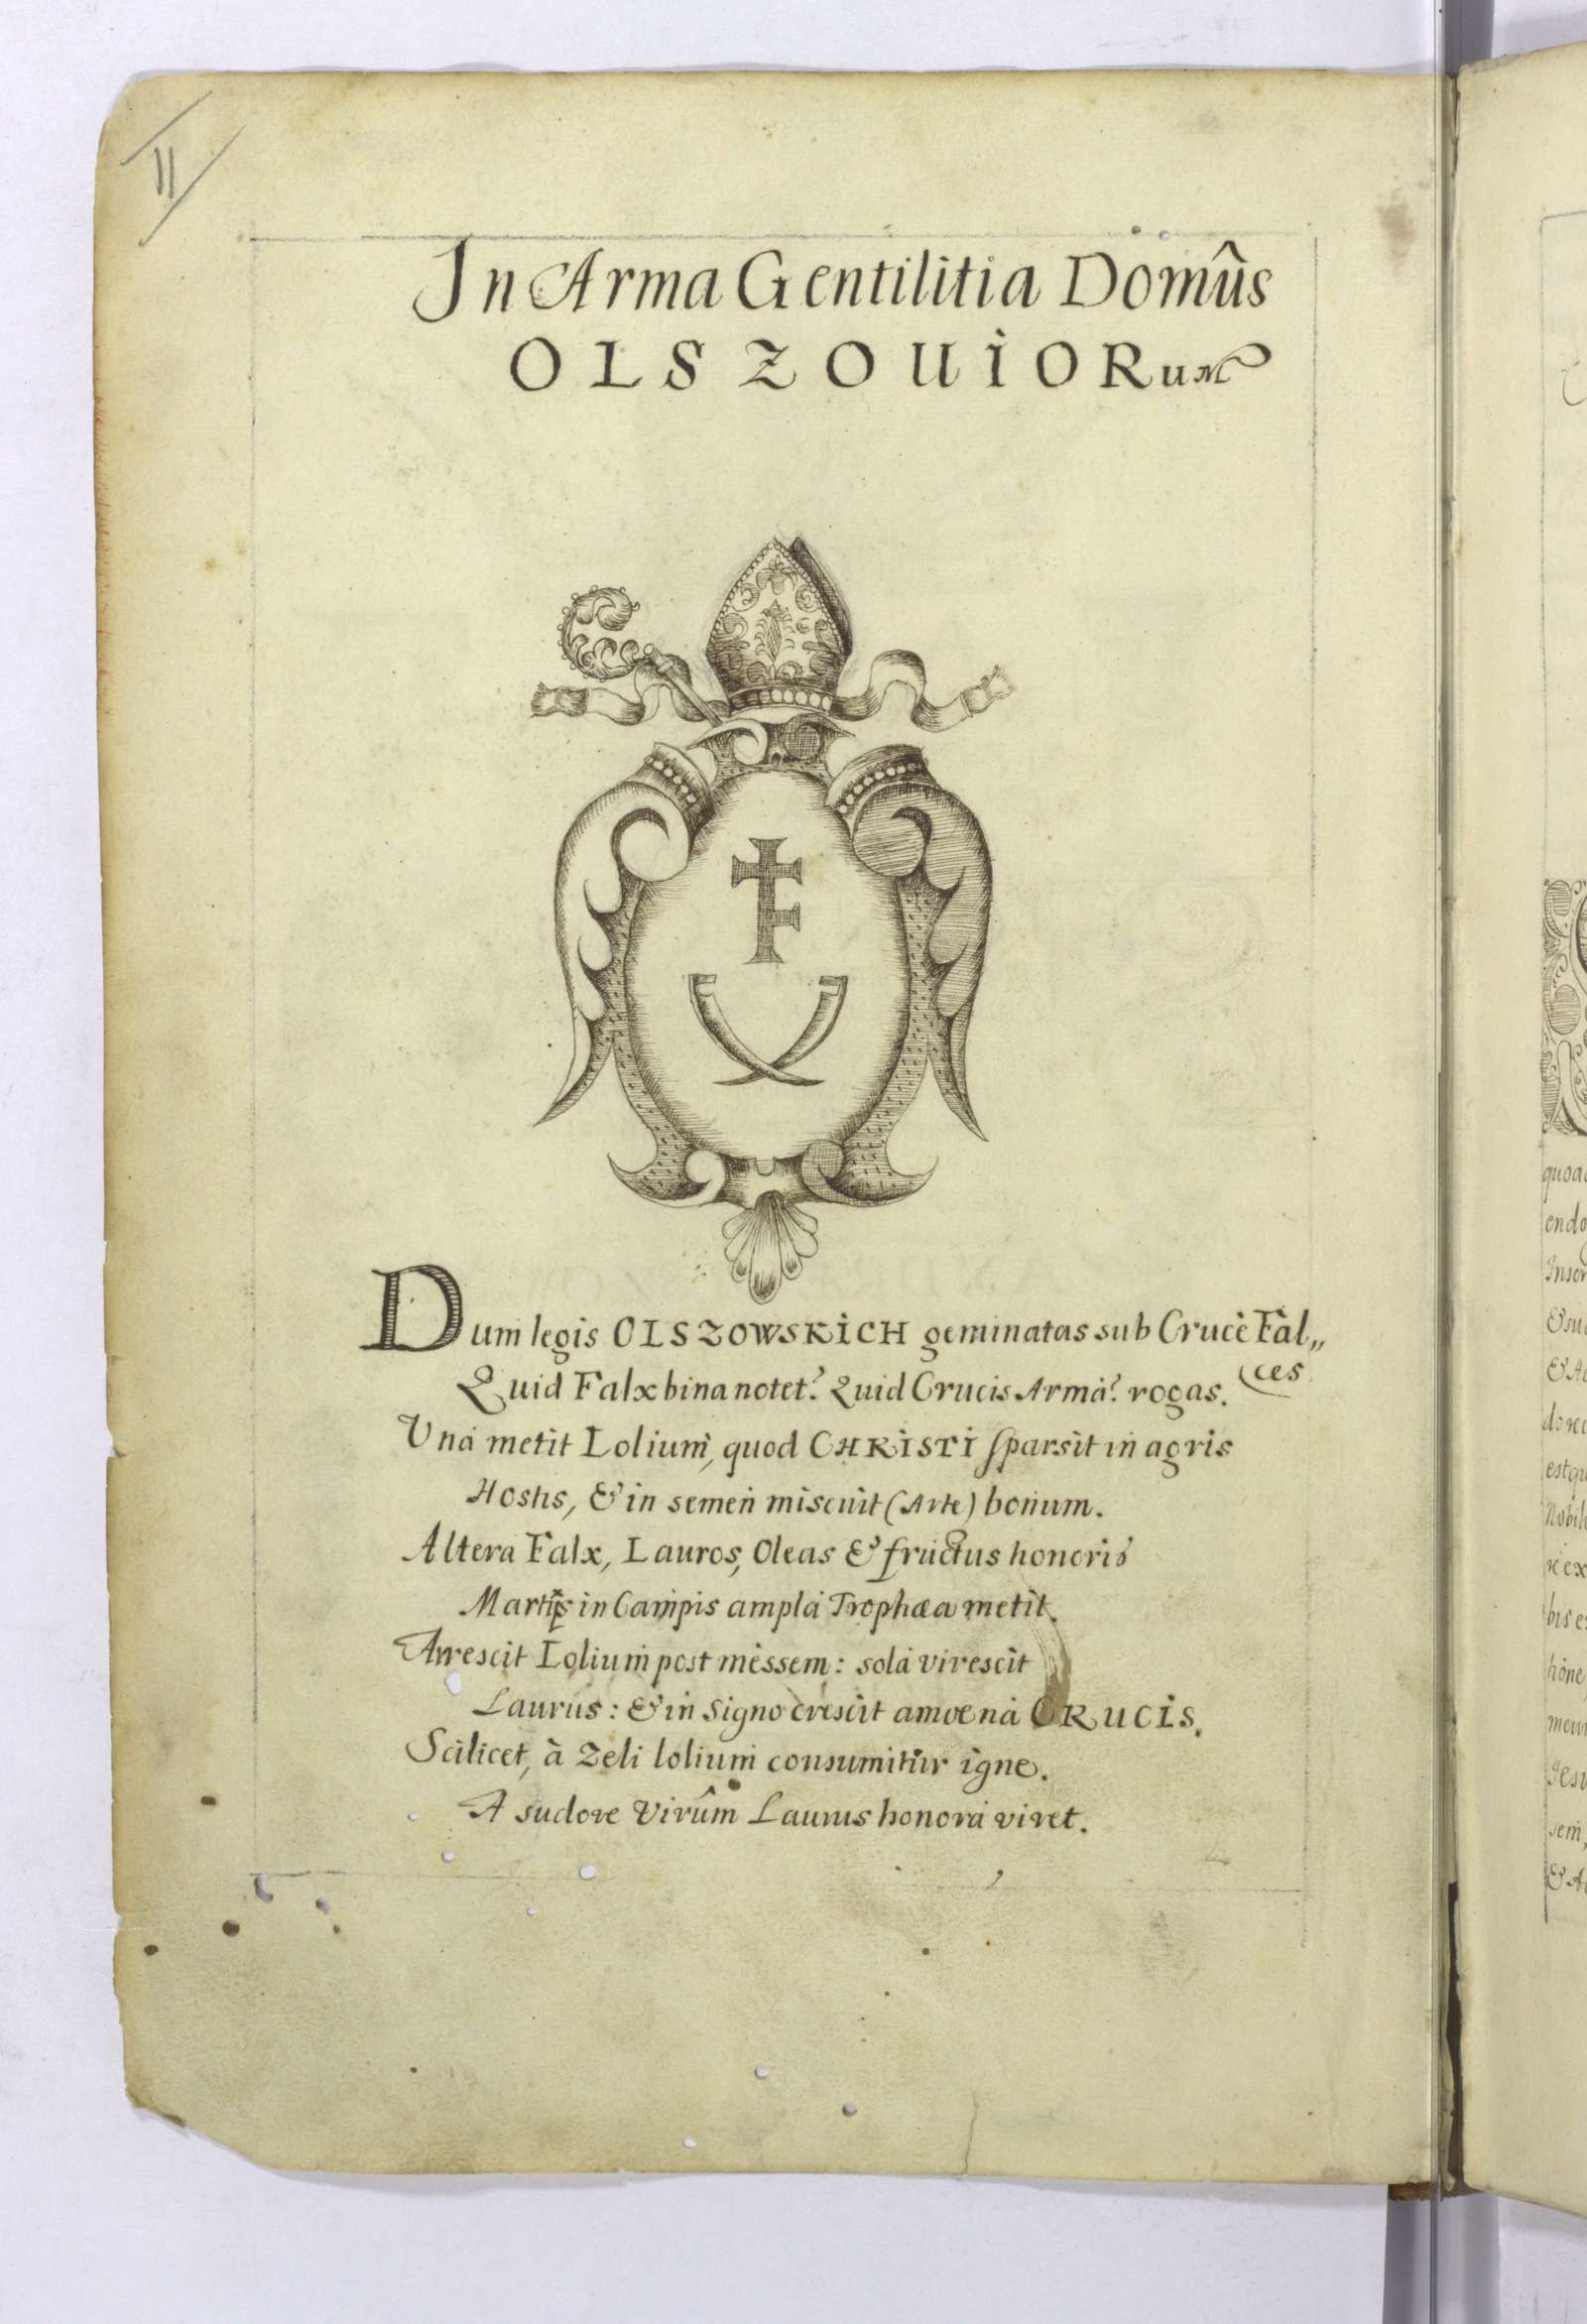 II
In Arma Gentilitia Domûs
OLSZOUIORuM
Dum legis OLSZOWSKICH geminatas sub Cruce Fal„
ces
Quid Falx bina notet? Quid Crucis Arma? rogas.
Una metit Lolium, quod CHRISTI sparsit in agris
Hostis, & in semen miscuit (Arte) bonum.
Altera Falx, Lauros, Oleas & fructus honoris
Martis in Campis ampla Trophæa metit.
Arrescit Lolium post messem: sola virescit
Laurus: & in Signo crescit amoena CRUCIS.
Scilicet, à Zeli lolium consumitur igne.
A sudore Virûm Laurus honora viret.
quoa
endo
Inser
& su
& A
dore
estqu
Nobil
bis e
hone
sem,
& A